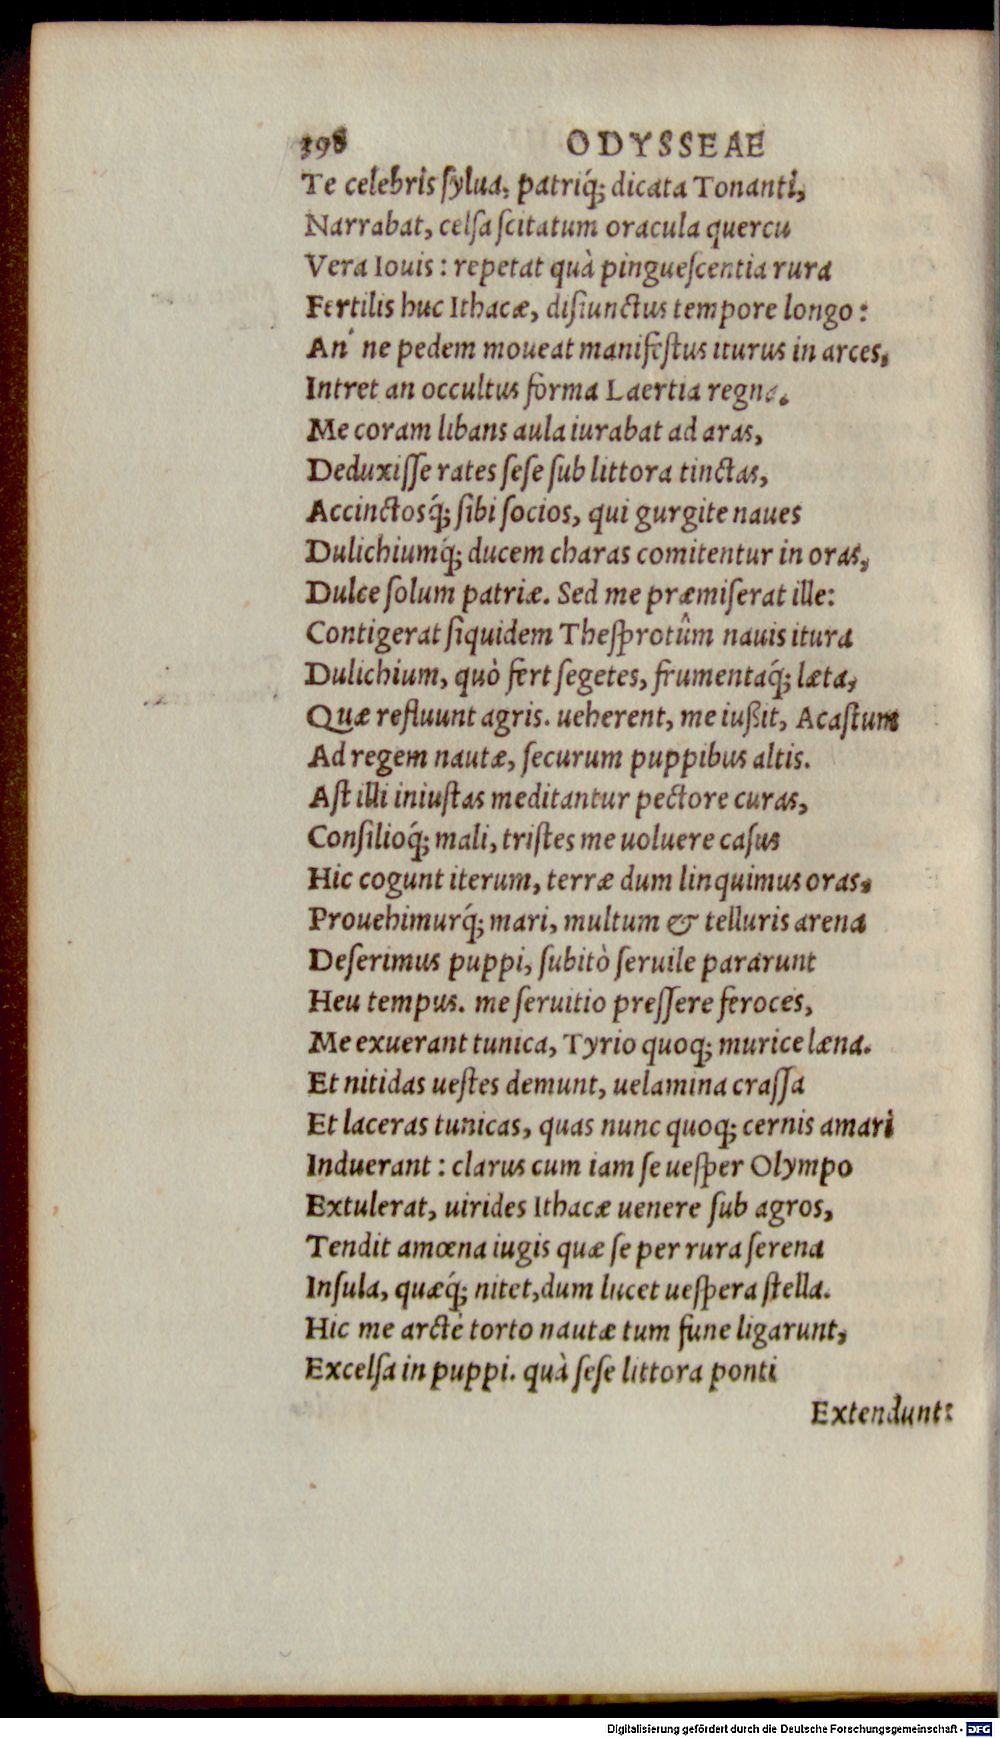 398 ODYSSEAE
Te celebris ſylua, patriq́; dicata Tonanti,
Narrabat, celſa ſcitatum oracula quercu
Vera Iouis : repetat quà pingueſcentia rura
Fertilis huc Ithacæ, diſiunctus tempore longo :
An' ne pedem moueat manifeſtus iturus in arces,
Intret an occultus forma Laertia regna.
Me coram libans aula iurabat ad aras,
Deduxiſſe rates ſeſe ſub littora tinctas,
Accinctosq́; ſibi ſocios, qui gurgite naues
Dulichiumq́; ducem charas comitentur in oras,
Dulce ſolum patriæ. Sed me præmiſerat ille:
Contigerat ſiquidem Theſprotûm nauis itura
Dulichium, quò fert ſegetes, frumentaq́; læta,
Quæ refluunt agris. ueherent, me iußit, Acaſtum
Ad regem nautæ, ſecurum puppibus altis.
Aſt illi iniuſtas meditantur pectore curas,
Conſilioq́; mali, triſtes me uoluere caſus
Hic cogunt iterum, terræ dum linquimus oras,
Prouehimurq́; mari, multum & telluris arena
Deſerimus puppi, ſubitò ſeruile pararunt
Heu tempus. me ſeruitio preſſere feroces,
Me exuerant tunica, Tyrio quoq; murice læna.
Et nitidas ueſtes demunt, uelamina craſſa
Et laceras tunicas, quas nunc quoq; cernis amari
Induerant : clarus cum iam ſe ueſper Olympo
Extulerat, uirides Ithacæ uenere ſub agros,
Tendit amœna iugis quæ ſe per rura ſerena
Inſula, quæq́; nitet, dum lucet ueſpera ſtella.
Hic me arctè torto nautæ tum fune ligarunt,
Excelſa in puppi. quà ſeſe littora ponti
Extendunt:
Digitalisierung gefördert durch die Deutsche Forschungsgemeinschaft - DFG